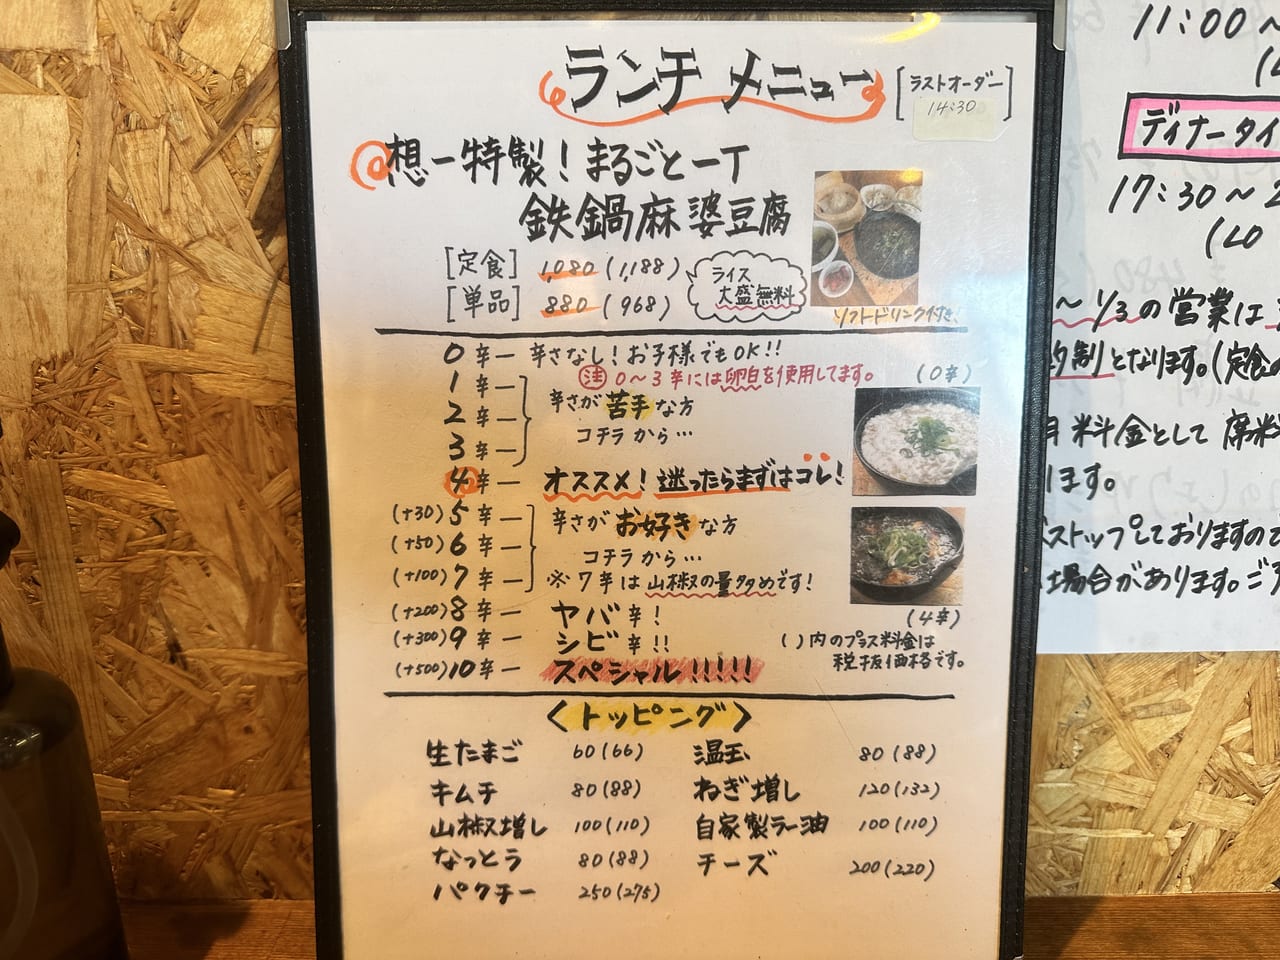 ランチ メニュー
[ラストオーダー
14:30]
想一特製！まるごと一丁
鉄鍋麻婆豆腐
[定食] 1,080 (1,188)
[単品] 880 (968)
ライス
大盛無料
ソフトドリンク付き!
0辛ー 辛さなし！お子様でもOK!!
注 0〜3辛には卵白を使用してます。
(0辛)
1辛ー
2辛ー
3辛ー
辛さが苦手な方
コチラから…
4辛ー オススメ！迷ったらまずはコレ！
(+30)5辛ー
(+50)6辛ー
(+100)7辛ー
辛さがお好きな方
コチラから…
※7辛は山椒の量多めです！
(4辛)
(+200)8辛ー ヤバ辛！
(+300)9辛ー シビ辛!!
(+500)10辛ー スペシャル!!!!!
( )内のプラス料金は
税抜価格です。
〈トッピング〉
生たまご 60(66)
温玉 80(88)
キムチ 80(88)
ねぎ増し 120(132)
山椒増し 100(110)
自家製ラー油 100(110)
なっとう 80(88)
チーズ 200(220)
パクチー 250(275)
11:00〜
ディナータイ
17:30〜2
(LO
〜1/3の営業は
制となります。(定食の
料金として席料
ります。
ストップしておりますので
場合があります。ご